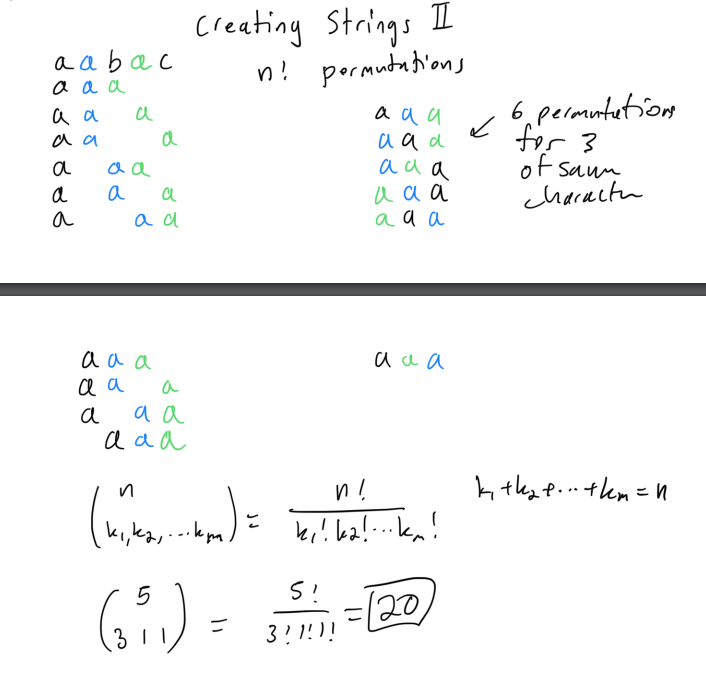 Creating Strings II
a a b a c
n! permutations
a a a
a a a
a a a
a a a
a a a
a a a
a a a
a a a
a a a
a a a
a a a
6 permutations
for 3
of same
character
a a a
a a a
a a a
a a a
a a a
(n k₁,k₂,...kₘ) = n! / k₁! k₂! ... kₘ!
k₁+k₂+...+kₘ=n
(5 3 1 1) = 5! / 3! 1! 1! = 20